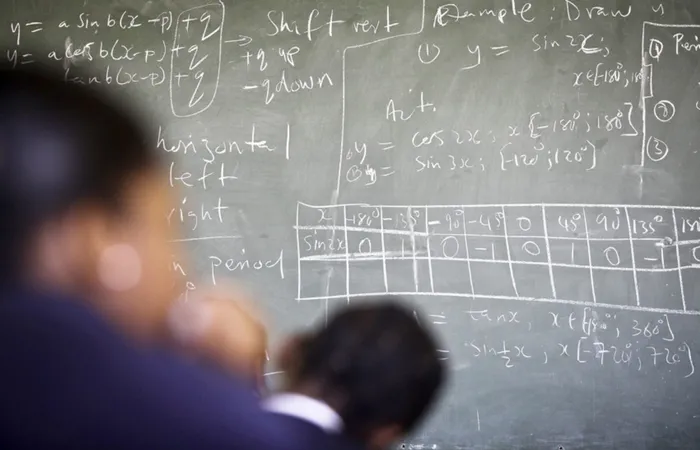 y = a sin b(x-p)+q
y = a cos b(x-p)+q
tan b(x-p)+q
Shift vert
+q up
-q down
horizontal
left
right
period
Example: Draw y
① y = sin 2x
x∈[-180°;180
Act.
① y = cos 2x, x[-180°;180°]
② y = sin 3x; [-120°;120°]
①
②
③
x -180° -135° -90° -45° 0 45° 90° 135° 180
Sin2x 0 1 0 -1 0 1 0 -1 0
= tan x, x∈[ ; 360°]
= sin ½x, x[-720°;720°]